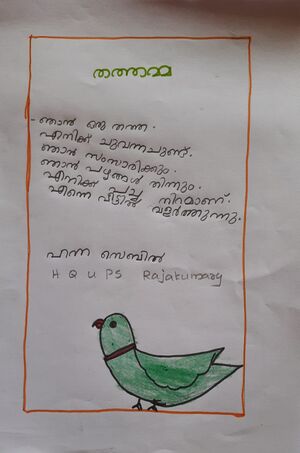 തത്തമ്മ
- ഞാൻ ഒരു തത്ത.
എനിക്ക് ചുവന്നചുണ്ടു്.
ഞാൻ സംസാരിക്കും.
ഞാൻ പഴങ്ങൾ തിന്നും.
എനിക്ക് പച്ച നിറമാണ്.
എന്നെ വീട്ടിൽ വളർത്തുന്നു.
ഹന്ന സെബിൻ
H Q U P S Rajakumary